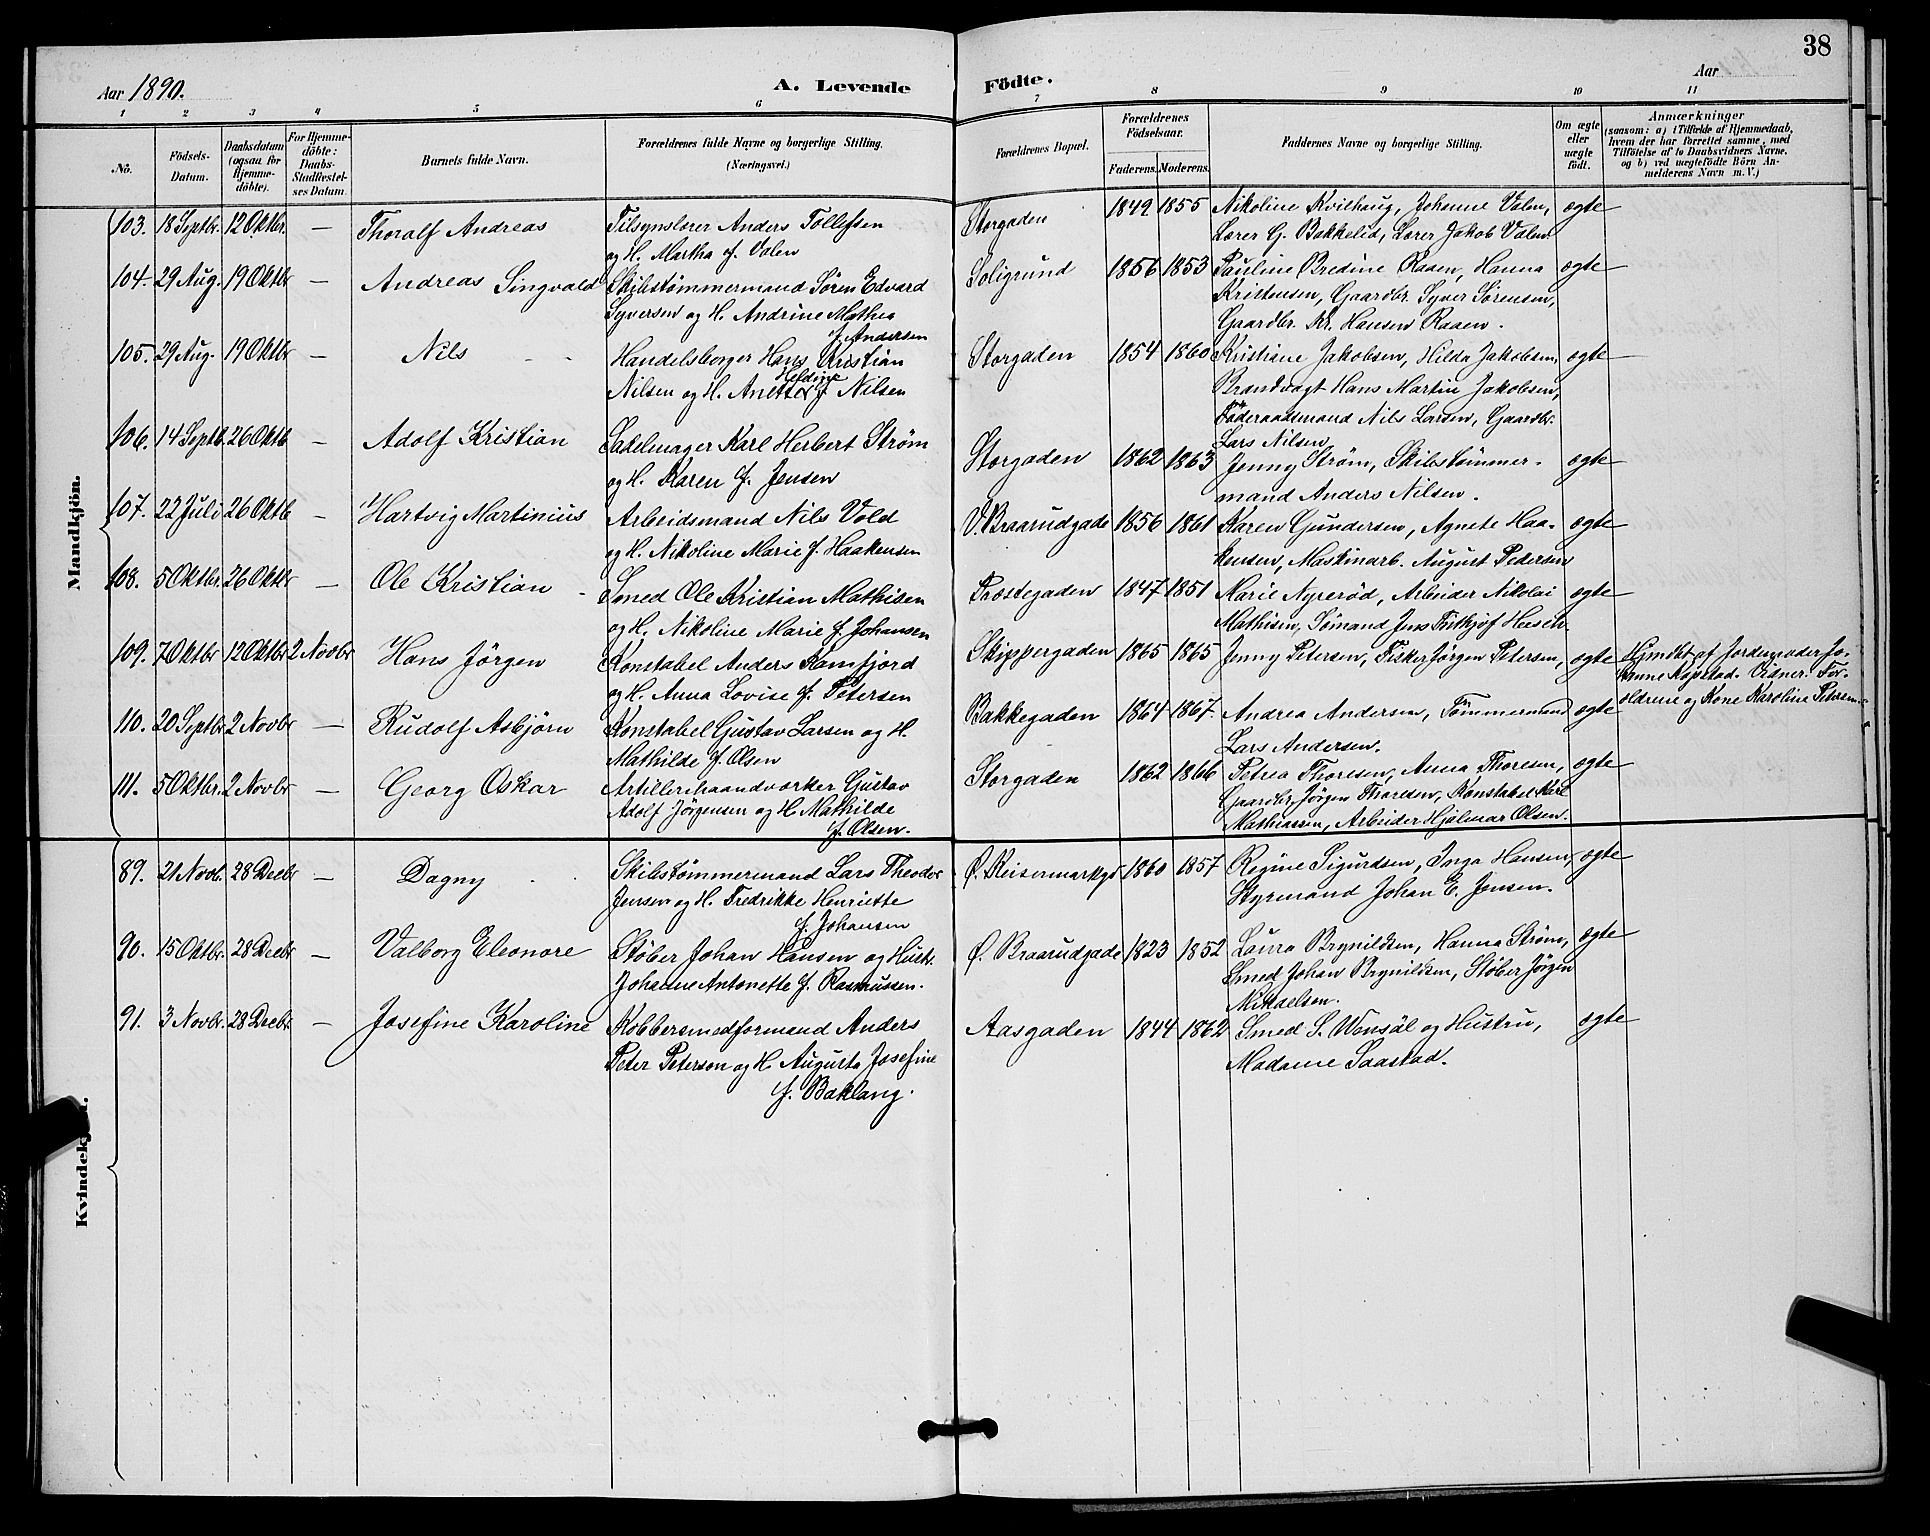 38
Aar 1890. A. Levende Födte. Aar
1 2 3 4 5 6 7 8 9 10 11
No. Födsels-Datum. Daabsdatum (ogsaa for Hjemme-döbte). For Hjemme-döbte: Daabs-Stadfæstel-ses Datum. Barnets fulde Navn. Forældrenes fulde Navne og borgerlige Stilling. (Næringsvei.) Forældrenes Bopæl. Forældrenes Födselsaar. Faderens. Moderens. Faddernes Navne og borgerlige Stilling. Om ægte eller uægte födt. Anmærkninger (saasom: a) i Tilfælde af Hjemmedaab, hvem der har forrettet samme, med Tilföielse af to Daabsvidners Navne, og b) ved uægtefödte Börn An-melderens Navn m. V.)
Mandkjön.
103. 18 Septbr. 12 Oktbr. — Thoralf Andreas Tilsynslærer Anders Tollefsen Storgaden 1849 1855 Nikoline Kvilhaug, Johanne Valen, ægte
og H. Martha f. Valen Lærer G. Bakkelid, Lærer Jakob Valen
104. 29 Aug. 19 Oktbr — Andreas Singvald Skibstømmermand Søren Edvard Soligrund 1856 1853 Pauline Bredine Raaen, Hanna ægte
Syversen og H. Andrine Mathea Kristensen, Gaardbr. Syver Sørensen,
f. Andersen Gaardbr. Kr. Hansen Raaen.
105. 29 Aug. 19 Oktbr — Nils Handelsborger Hans Kristian Storgaden 1854 1860 Kristiane Jakobsen, Hilda Jakobsen, ægte
Heldine
Nilsen og H. Anette f Nilsen Brandvagt Hans Martin Jakobsen,
Föderaadsmand Nils Larsen, Gaardbr.
Lars Nilsen
106. 14 Septb. 26 Oktb — Adolf Kristian Sadelmager Karl Herbert Strøm Storgaden 1862 1863 Jenny Strøm, Skibstømmer- ægte
og H. Karen f. Jensen mand Anders Nilsen.
107. 22 Juli 26 Oktb — Hartvig Martinius Arbeidsmand Nils Vold V. Braarudgade 1856 1861 Karen Gundersen, Agnete Haa- ægte
og H. Nikoline Marie f. Haakensen kensen, Maskinarb. August Petersen
108. 5 Oktbr. 26 Oktbr — Ole Kristian Smed Ole Kristian Mathisen Præstegaden 1847 1851 Marie Nyrerød, Arbeider Nikolai ægte
og H. Nikoline Marie f Johansen Mathisen, Sømand Jens Fritkjöf Husein
109. 7 Oktbr 12 Oktbr 2 Novbr Hans Jörgen Konstabel Anders Ramfjord Skippergaden 1865 1865 Jenny Petersen, Fisker Jörgen Petersen, ægte Hjmdbt af Jordemoder Jo-
og H. Anna Lovise f. Petersen hanne Kopstad. Vidner: For-
ældrene og Kone Karoline Petersen
110. 20 Septbr 2 Novbr — Rudolf Asbjörn Konstabel Gustav Larsen og H. Bakkegaden 1864 1867. Andrea Andersen, Tömmermand ægte
Mathilde f. Olsen Lars Andersen.
111. 5 Oktbr. 2 Novbr — Georg Oskar Artillerihaandværker Gustav Storgaden 1862 1866 Petrea Thoresen, Anna Thoresen, ægte
Adolf Jörgensen og H. Mathilde Gaardbr. Jörgen Thoresen, Konstabel Karl
f. Olsen. Mathiassen, Arbeider Hjalmar Olsen.
Kvindekj
89. 21 Novb. 28 Decbr — Dagny Skibstømmermand Lars Theodor Ø. Keisermarkgd 1860 1857 Regine Sigurdsen, Inga Hansen, ægte
Jensen og H. Fredrikke Henriette Styrmand Johan E. Jensen.
f. Johansen
90. 15 Oktbr. 28 Decbr — Valborg Eleonore Støber Johan Hansen og Hustr. Ø. Braarudgade 1823 1852 Laura Brynildsen, Hanna Strøm, ægte
Johanne Antonette f. Rasmussen. Smed Johan Brynildsen, Støber Jörgen
Mikaelsen.
91. 3 Novbr. 28 Decbr. — Josefine Karoline Kobbersmedformand Anders Aasgaden 1844 1862 Smed S. Wensäl og Hustru, ægte
Peter Peterson og H. Augusta Josefine Madame Saastad.
f. Baklang.